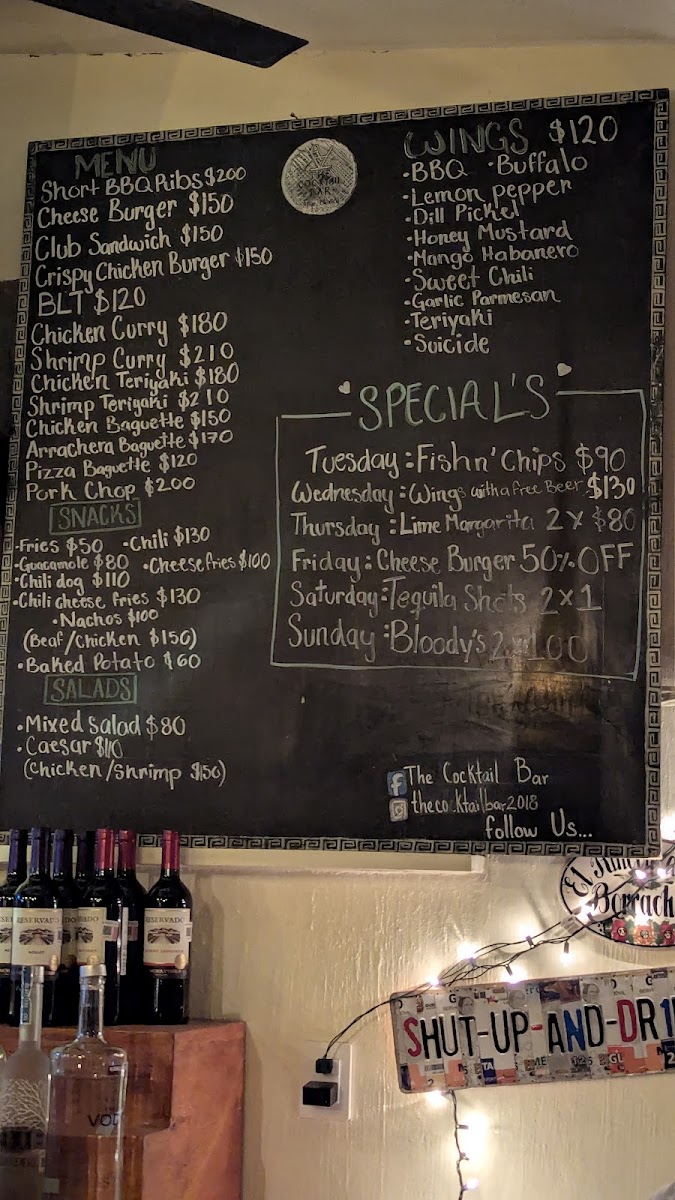 MENU
Short BBQ Ribs $200
Cheese Burger $150
Club Sandwich $150
Crispy Chicken Burger $150
BLT $120
Chicken Curry $180
Shrimp Curry $210
Chicken Teriyaki $180
Shrimp Teriyaki $210
Chicken Baguette $150
Arrachera Baguette $170
Pizza Baguette $120
Pork Chop $200
SNACKS
•Fries $50 •Chili $130
•Guacamole $80 •Cheese fries $100
•Chili dog $110
•Chili cheese fries $130
•Nachos $100
(Beaf/Chicken $150)
•Baked Potato $60
SALADS
•Mixed Salad $80
•Caesar $110
(Chicken/Shrimp $150)
WINGS $120
•BBQ •Buffalo
•Lemon pepper
•Dill Pickel
•Honey Mustard
•Mango Habanero
•Sweet Chili
•Garlic Parmesan
•Teriyaki
•Suicide
SPECIAL'S
Tuesday: Fish n' Chips $90
Wednesday: Wings with a free Beer $130
Thursday: Lime Margarita 2x $80
Friday: Cheese Burger 50% OFF
Saturday: Tequila Shots 2x1
Sunday: Bloody's 2x100
The Cocktail Bar
thecocktailbar2018
follow Us...
RESERVADO
El Rincón
Borrach
SHUT-UP-AND-DR1